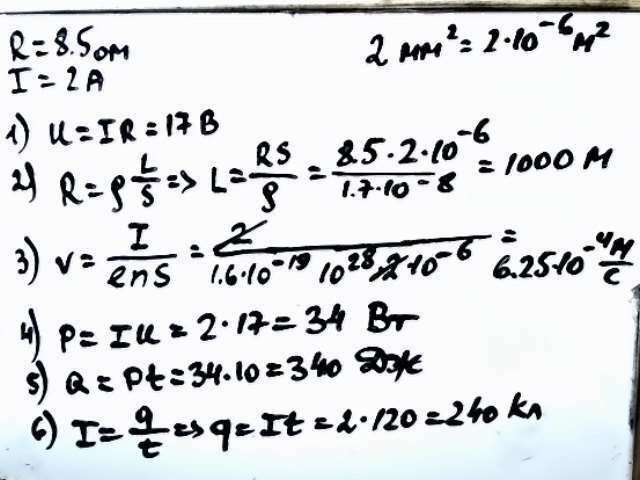 R = 8.5 ом
2 мм² = 2·10⁻⁶ м²
I = 2 А
1) U = IR = 17 В
2) R = ρ L/S => L = RS/ρ = 8.5·2·10⁻⁶/1.7·10⁻⁸ = 1000 м
3) v = I/enS = 2/1.6·10⁻¹⁹ 10²⁸·2·10⁻⁶ = 6.25·10⁻⁴ м/с
4) P = IU = 2·17 = 34 Вт
5) Q = Pt = 34·10 = 340 Дж
6) I = q/t => q = It = 2·120 = 240 Кл